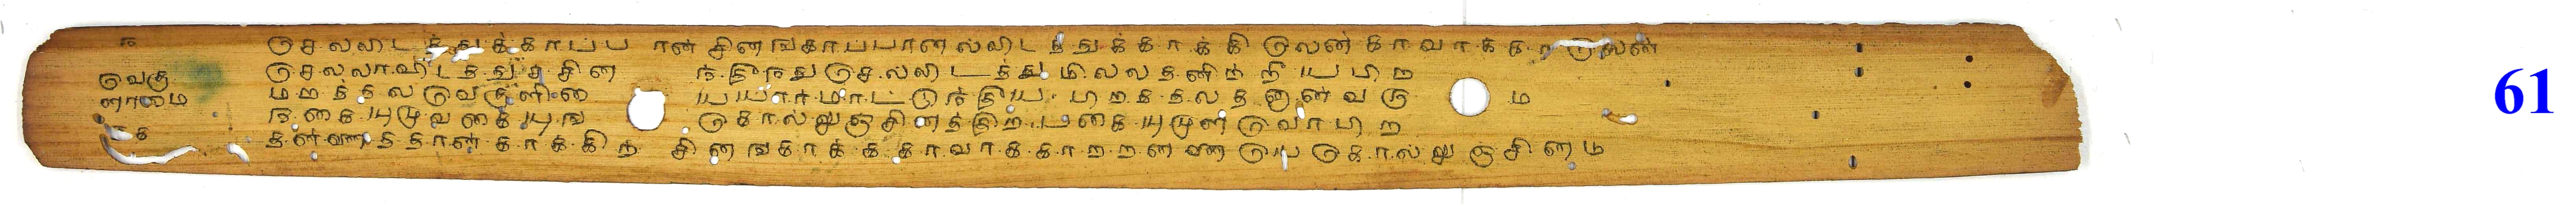 ௩
செலலிடத்துக்காப்பான் சினங்காப்பானல்லிடத்துக்காக்கிலென் காவாக்காலென்
வெகு
செலலாவிடத்துச்சின ந்தீதுசெல்லிடத்து மில்லதனிற்றீயபிற
ளாமை
மறத்தல்வெகுளியை யயார்மாட்டுந்தீய பிறத்தலதனான்வரு ம
நகையுமுவகையுங கொல்லுஞ்சினத்திற் பகையுமுளவோபிற
௧
தன்னைத்தான்காக்கிற் சினங்காக்க காவாக்காற்றன்னையே கொல்லுஞ்சினம
61